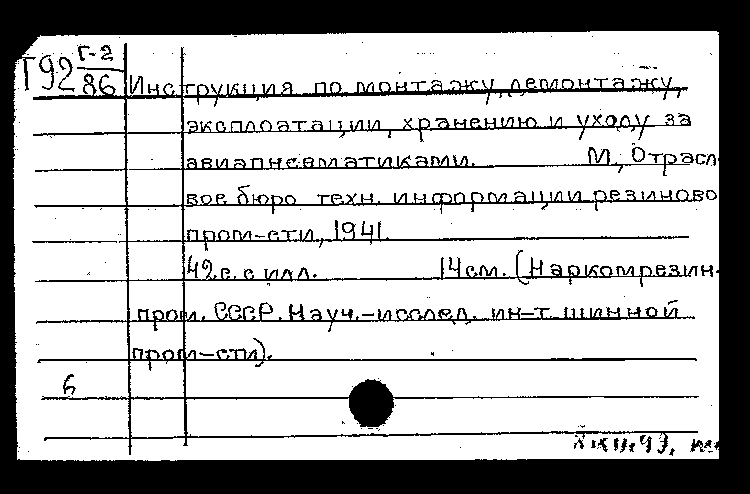 Г92 Г-2
86 Инструкция по монтажу, демонтажу,
эксплоатации, хранению и уходу за
авиапневматиками. М., Отрасл-
вое бюро техн. информации резиново
пром-сти, 1941.
42 с. с илл. 14 см. (Наркомрезин-
пром. СССР. Науч.-исслед. ин-т шинной
пром-сти).
6